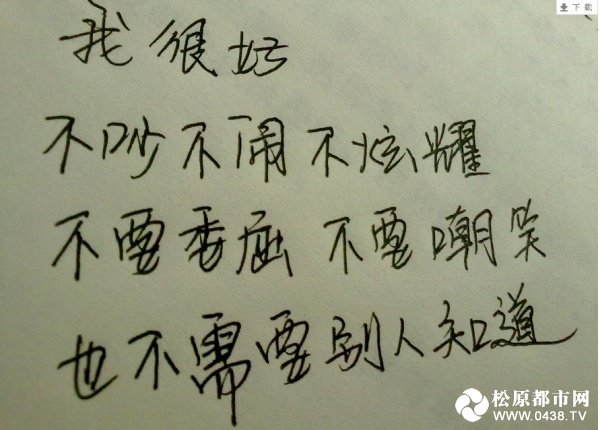 下载
我很好
不吵不闹不炫耀
不要委屈 不要嘲笑
也不需要别人知道
松原都市网
WWW.0438.TV